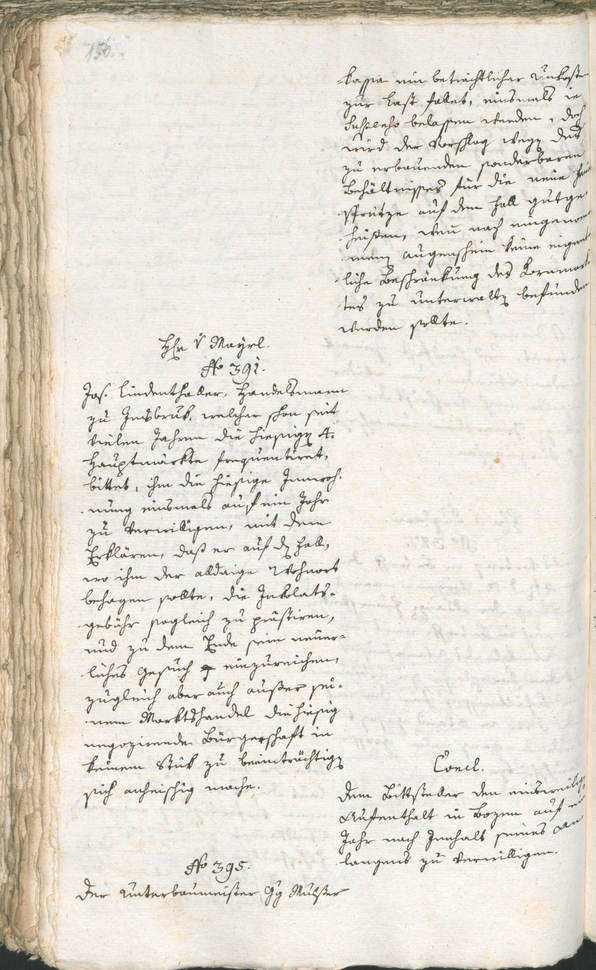 156.
kassa ein beträchtlicher Unkosten
zur Last fallet, einsmals in
Suspenso belassen werden, doch
wird der Vorschlag wegen des
zu erbauenden sonderbaren
Behältnisses für die neue
Spritze auf dem Fall gutge-
heißen, wenn nach eingenom-
menen Augenschein keine eigent-
liche Beschränkung des Kornmark-
tes zu unterwalten befunden
werden sollte.
Hr. v Mayrl.
No 391.
Jos. Lindenthaler, Handelsmann
zu Insbruk, welcher schon seit
vielen Jahren die hiesigen 4.
Hauptmärkte frequentiret,
bittet, ihm die hiesige Innwoh-
nung einsmals auf ein Jahr
zu verwilligen, mit dem
Erklären, daß er auf den Fall,
wo ihm der alldaige Wohnort
behagen sollte, die Inkolats-
gebühr sogleich zu prästiren,
und zu dem Ende sein neuer-
liches Gesuch einzureichen,
zugleich aber auch außer sei-
nem Marktshandel die hiesig
negozirende Bürgerschaft in
keinem Stük zu beeinträchtigen
sich anheischig mache.
Concl.
Dem Bittsteller den einsweiligen
Aufenthalt in Bozen auf ein
Jahr nach Innhalt seines An-
langens zu verwilligen.
No 395.
Der Unterbaumeister Gg Mußer